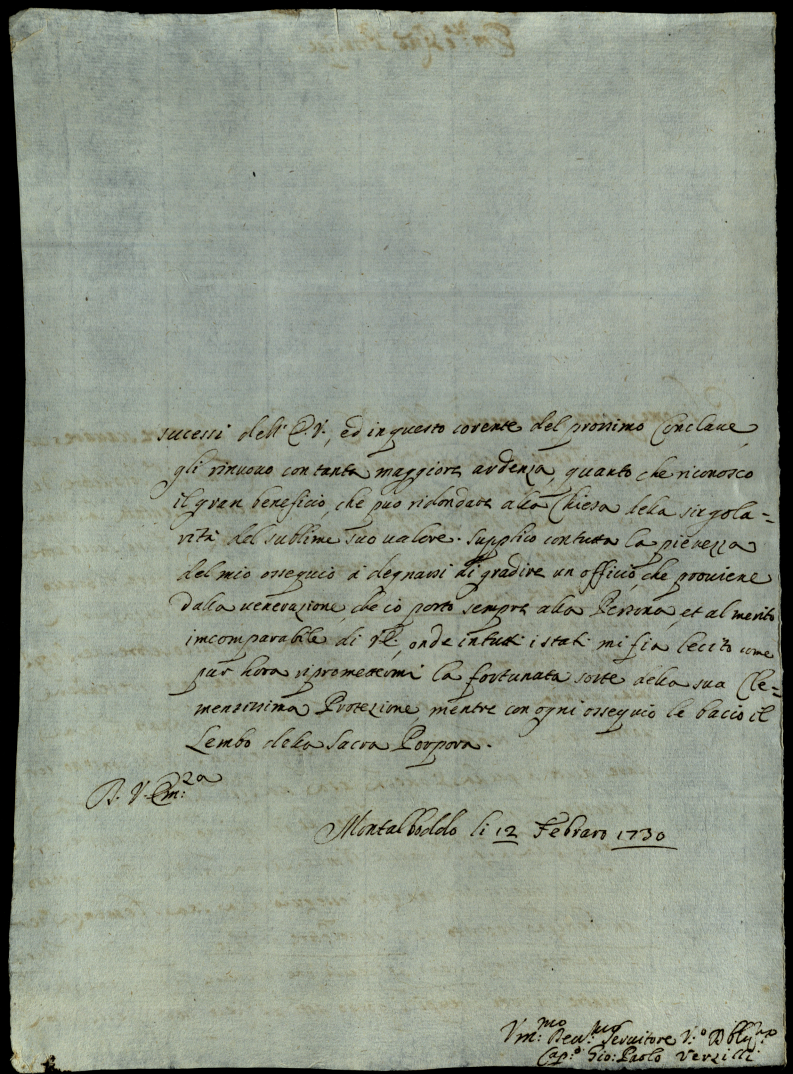 sucessi dell' E.V., ed in questo corente del prossimo Conclave,
gli rinuovo con tanta maggiore ardenza, quanto che riconosco
il gran beneficio, che può ridondare alla Chiesa della singola=
rità del sublime suo valore. Supplico con tutta la pienezza
del mio ossequio à degnarsi di gradire un officio, che proviene
dalla venerazione, che io porto sempre alla Persona, et al merito
imcomparabile di V.E., onde in tutti i stati mi sia lecito come
pur hora ripromettermi la fortunata sorte della sua Cle=
mentissima Protezione, mentre con ogni ossequio le bacio il
Lembo della Sacra Porpora.
D. V. Em:za
Montalboddo li 12 Febraro 1730
Um:mo Dev:mo Servitore V:o Obblig:mo
Cap:o Gio: Paolo Verzilli